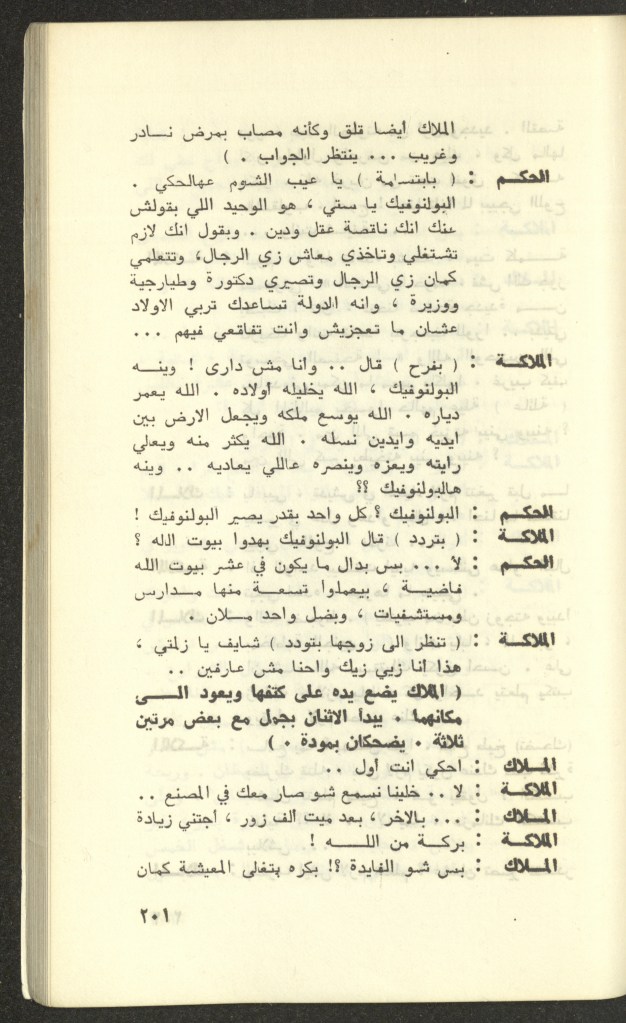 الملاك أيضا قلق وكأنه مصاب بمرض نــادر
وغريب ... ينتظر الجواب . )
الحكــم : ( بابتسامة ) يا عيب الشوم عهالحكي .
البولنوفيك يا ستي ، هو الوحيد اللي بقولش
عنك انك ناقصة عقل ودين . وبقول انك لازم
تشتغلي وتاخذي معاش زي الرجال، وتتعلمي
كمان زي الرجال وتصيري دكتورة وطيارجية
ووزيرة ، وانه الدولة تساعدك تربي الاولاد
عشان ما تعجزيش وانت تفاقعي فيهم ...
الملاكــة : ( بفرح ) قال .. وانا مش دارى ! وينــه
البولنوفيك ، الله يخليله أولاده . الله يعمر
دياره . الله يوسع ملكه ويجعل الارض بين
ايديه وايدين نسله . الله يكثر منه ويعلي
رايته ويعزه وينصره عاللي يعاديه .. وينه
هالبولنوفيك ؟؟
الحكــم : البولنوفيك ؟ كل واحد بقدر يصير البولنوفيك !
الملاكــة : ( بتردد ) قال البولنوفيك بهدوا بيوت الله ؟
الحكــم : لأ ... بس بدال ما يكون في عشر بيوت الله
فاضيــة ، بيعملوا تسعــة منها مــدارس
ومستشفيات ، وبضل واحد مــلان .
الملاكــة : ( تنظر الى زوجها بتودد ) شايف يا زلمتي ،
هذا انا زيي زيك واحنا مش عارفين ..
( الملاك يضع يده على كتفها ويعود الــى
مكانهما . يبدأ الاثنان بجمل مع بعض مرتين
ثلاثة . يضحكان بمودة . )
المــلاك : احكي انت أول ..
الملاكــة : لا .. خلينا نسمع شو صار معك في المصنع ..
المــلاك : ... بالاخر ، بعد ميت ألف زور ، أجتني زيادة
الملاكــة : بركــة من اللــــه !
المــلاك : بس شو الفايدة ؟! بكره بتغلى المعيشة كمان
٢٠١